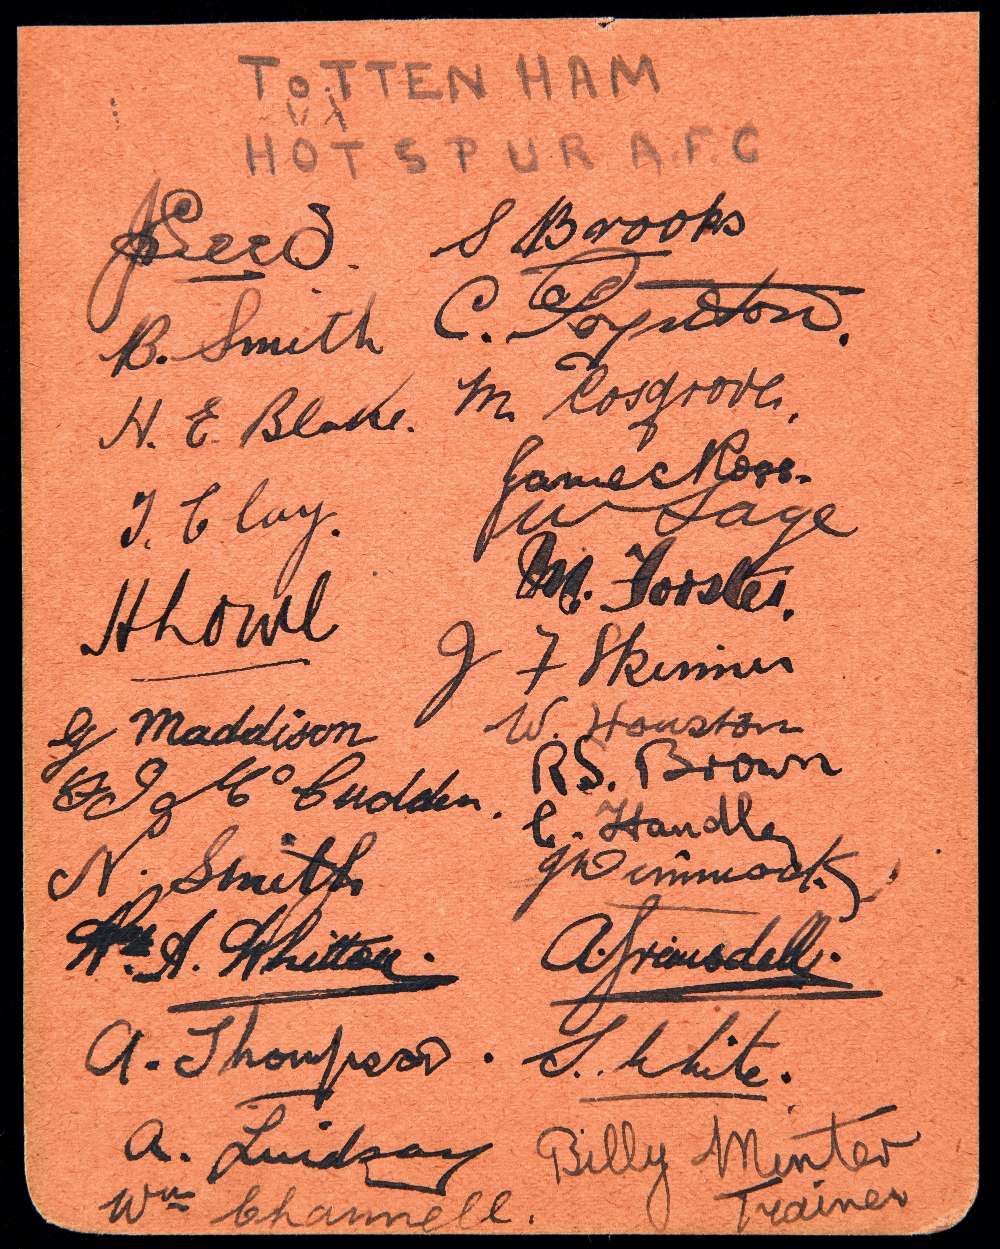 TOTTENHAM
HOTSPUR A.F.C
J Seed. S Brooks
B. Smith C. Poynton.
H. E. Blake. M. Cosgrove.
James Ross.
T. Clay. W Sage
M. Forster.
H Lowe J F Skinner
G Maddison W. Houston
R.S. Brown
F J McCudden. C. Handley
N. Smith J Dimmock.
Wm. H. Whitton. A. Grimsdell.
A. Thompson. S. White.
A. Lindsay Billy Minter
Wm Channell. Trainer